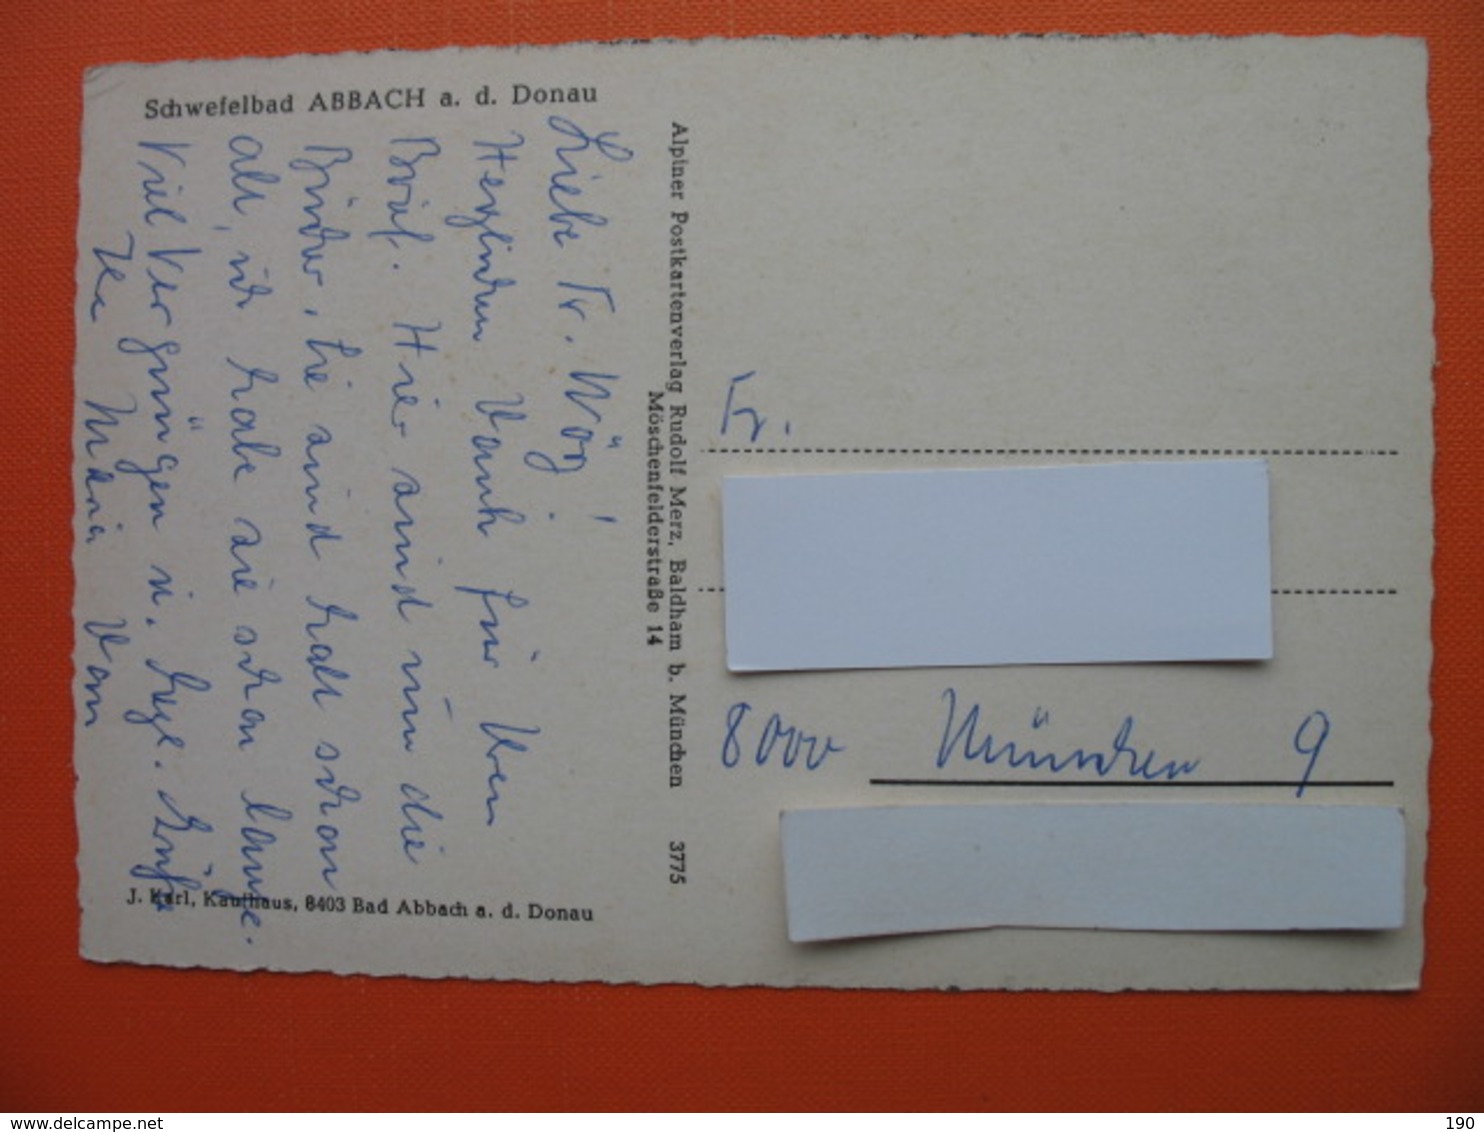 Schwefelbad ABBACH a. d. Donau
Liebe Fr. Wörj!
Herzlichen Dank für Ihren
Brief. Hier sind nun die
Bücher. Sie sind halt schon
alt, ich habe sie schon lange.
Viel Vergnügen u. herzl. Grüße
Ihre Maria
Alpiner Postkartenverlag Rudolf Merz, Baldham b. München 3775
Möschenfelderstraße 14
J. Karl, Kaufhaus, 8403 Bad Abbach a. d. Donau
Fr.
8000 München 9
delcampe.net
190